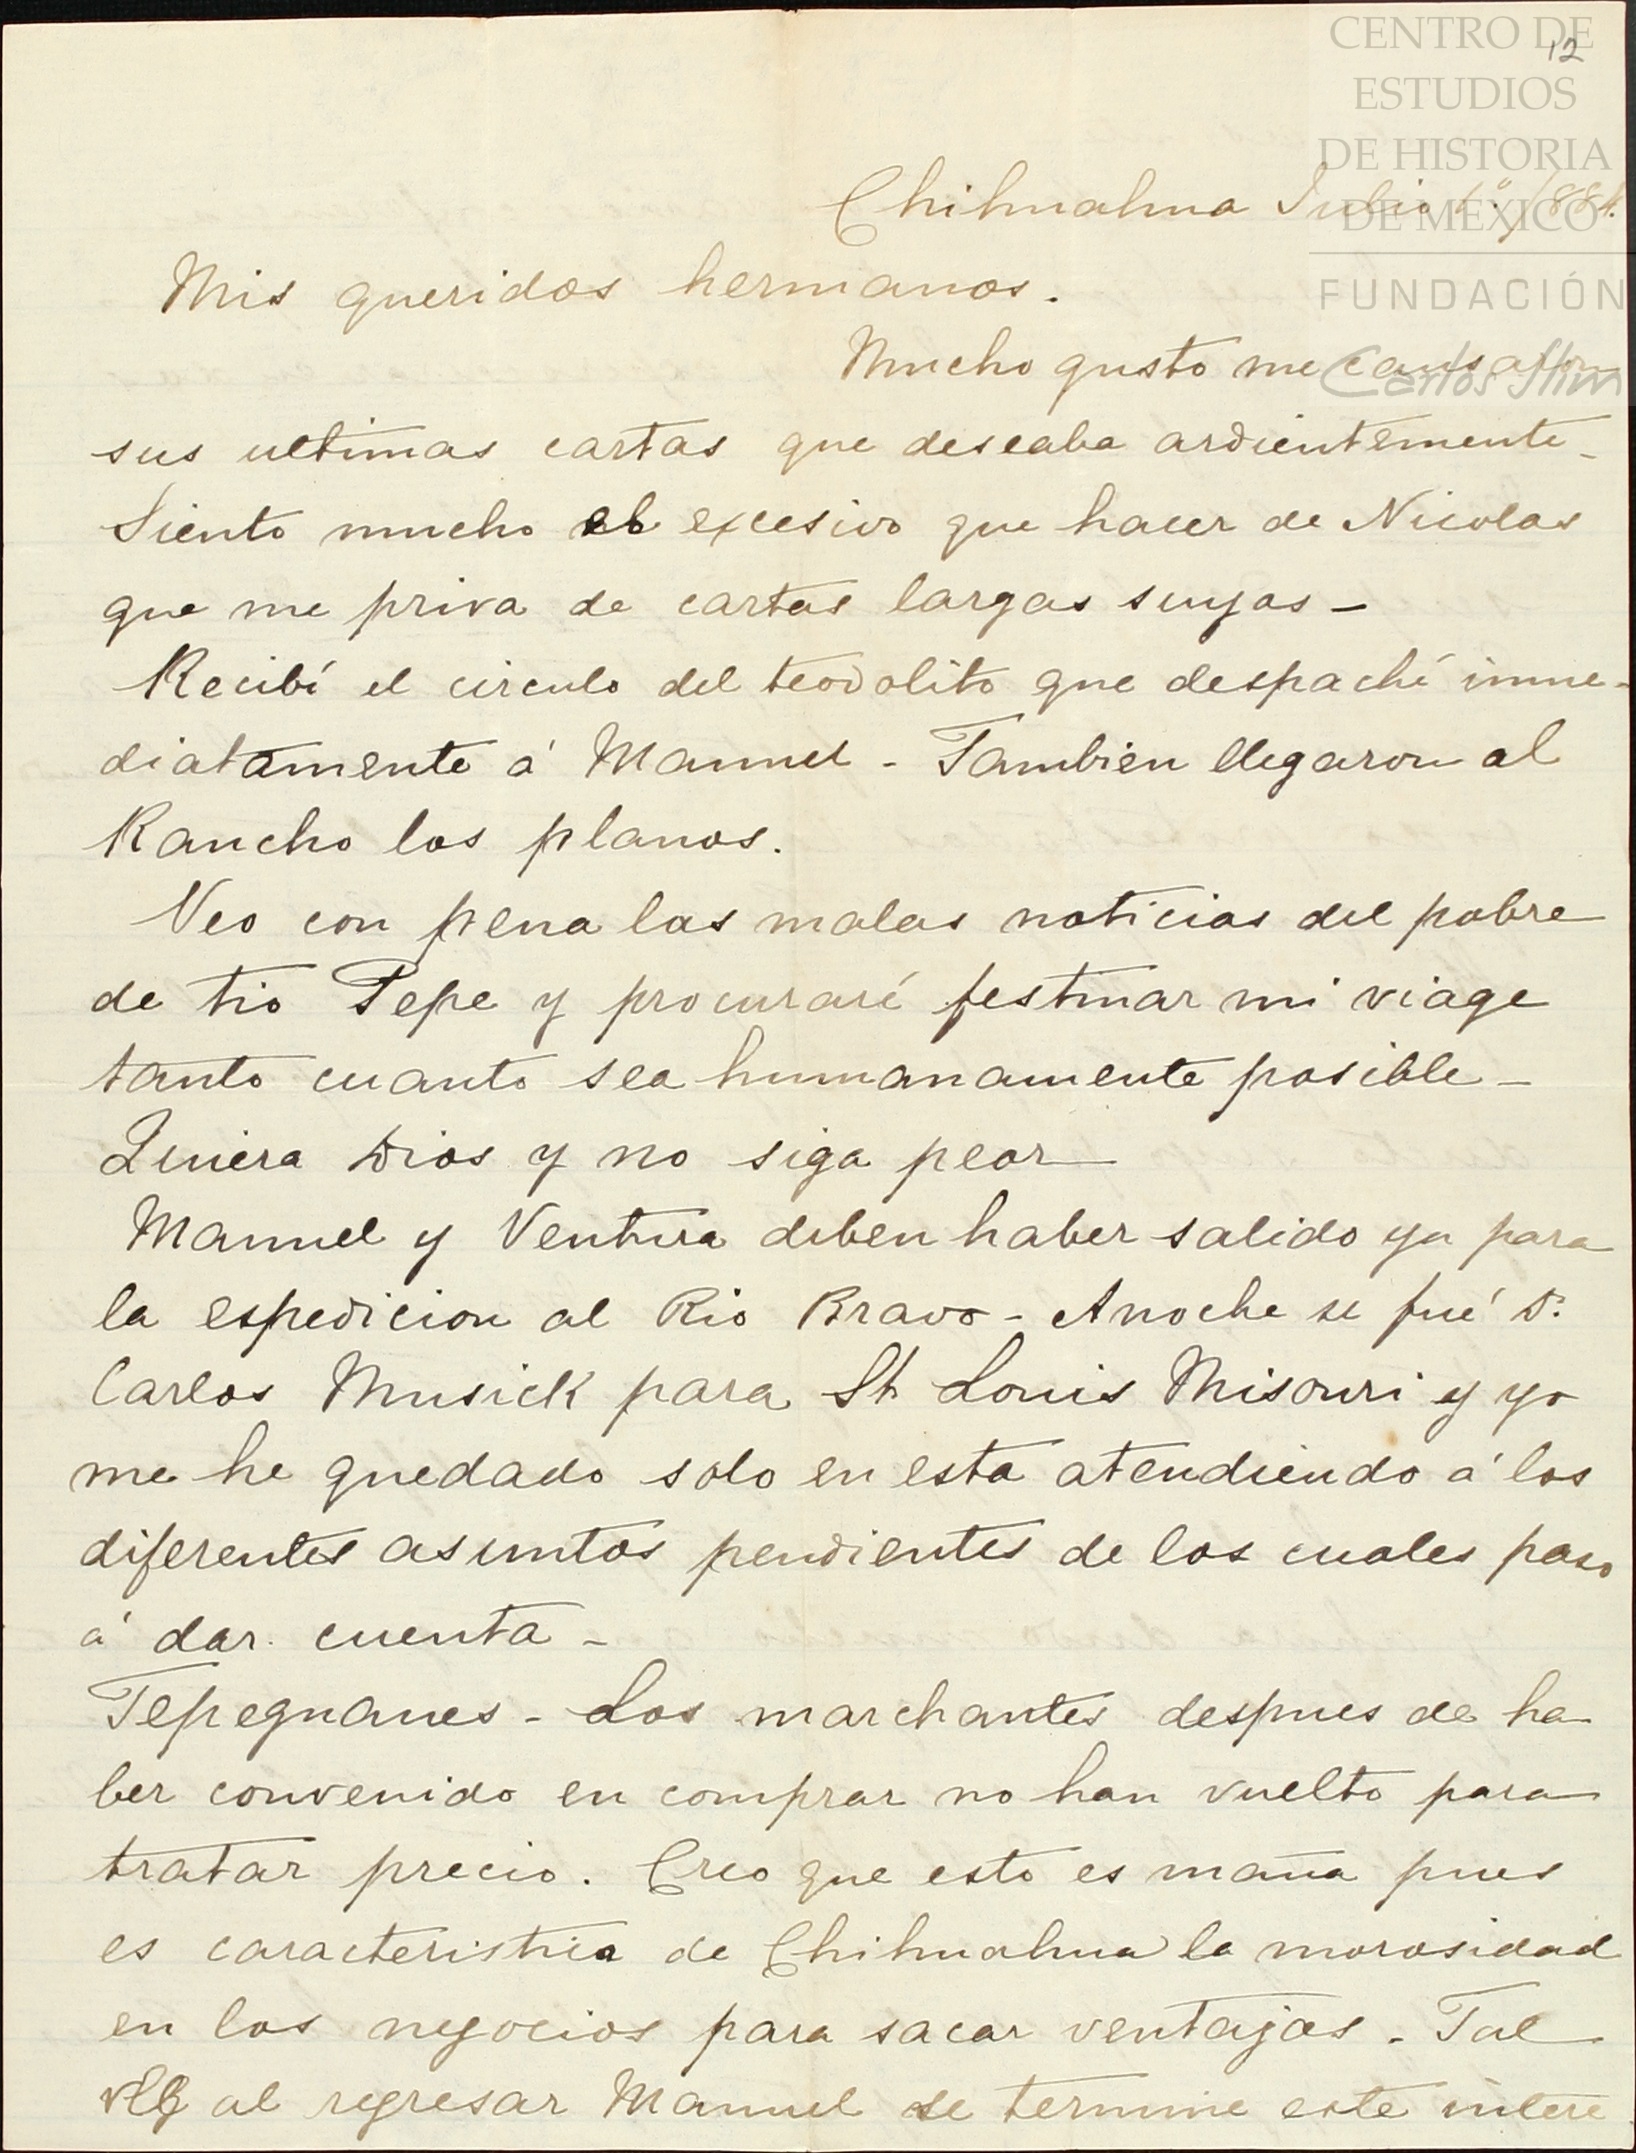 CENTRO DE
12
ESTUDIOS
DE HISTORIA
DE MÉXICO
FUNDACIÓN
Carlos Slim
Chihuahua Julio 1º./884.
Mis queridos hermanos.
Mucho gusto me causaron
sus ultimas cartas que deseaba ardientemente _
Siento mucho el excesivo que hacer de Nicolas
que me priva de cartas largas suyas _
Recibí el circulo del teodolito que despaché inme-
diatamente á Manuel - Tambien llegaron al
Rancho los planos.
Veo con pena las malas noticias del pobre
de tio Pepe y procuraré festinar mi viage
tanto cuanto sea humanamente posible _
Quiera Dios y no siga peor
Manuel y Ventura deben haber salido ya para
la espedicion al Rio Bravo - Anoche se fué D.
Carlos Musick para St Louis Misouri y yo
me he quedado solo en esta atendiendo á los
diferentes asuntos pendientes de los cuales paso
á dar cuenta _
Tepeguanes - Los marchantes despues de ha
ber convenido en comprar no han vuelto para
tratar precio. Creo que esto es maña pues
es caracteristica de Chihuahua la morosidad
en los negocios para sacar ventajas - Tal
vez al regresar Manuel se termine este intere